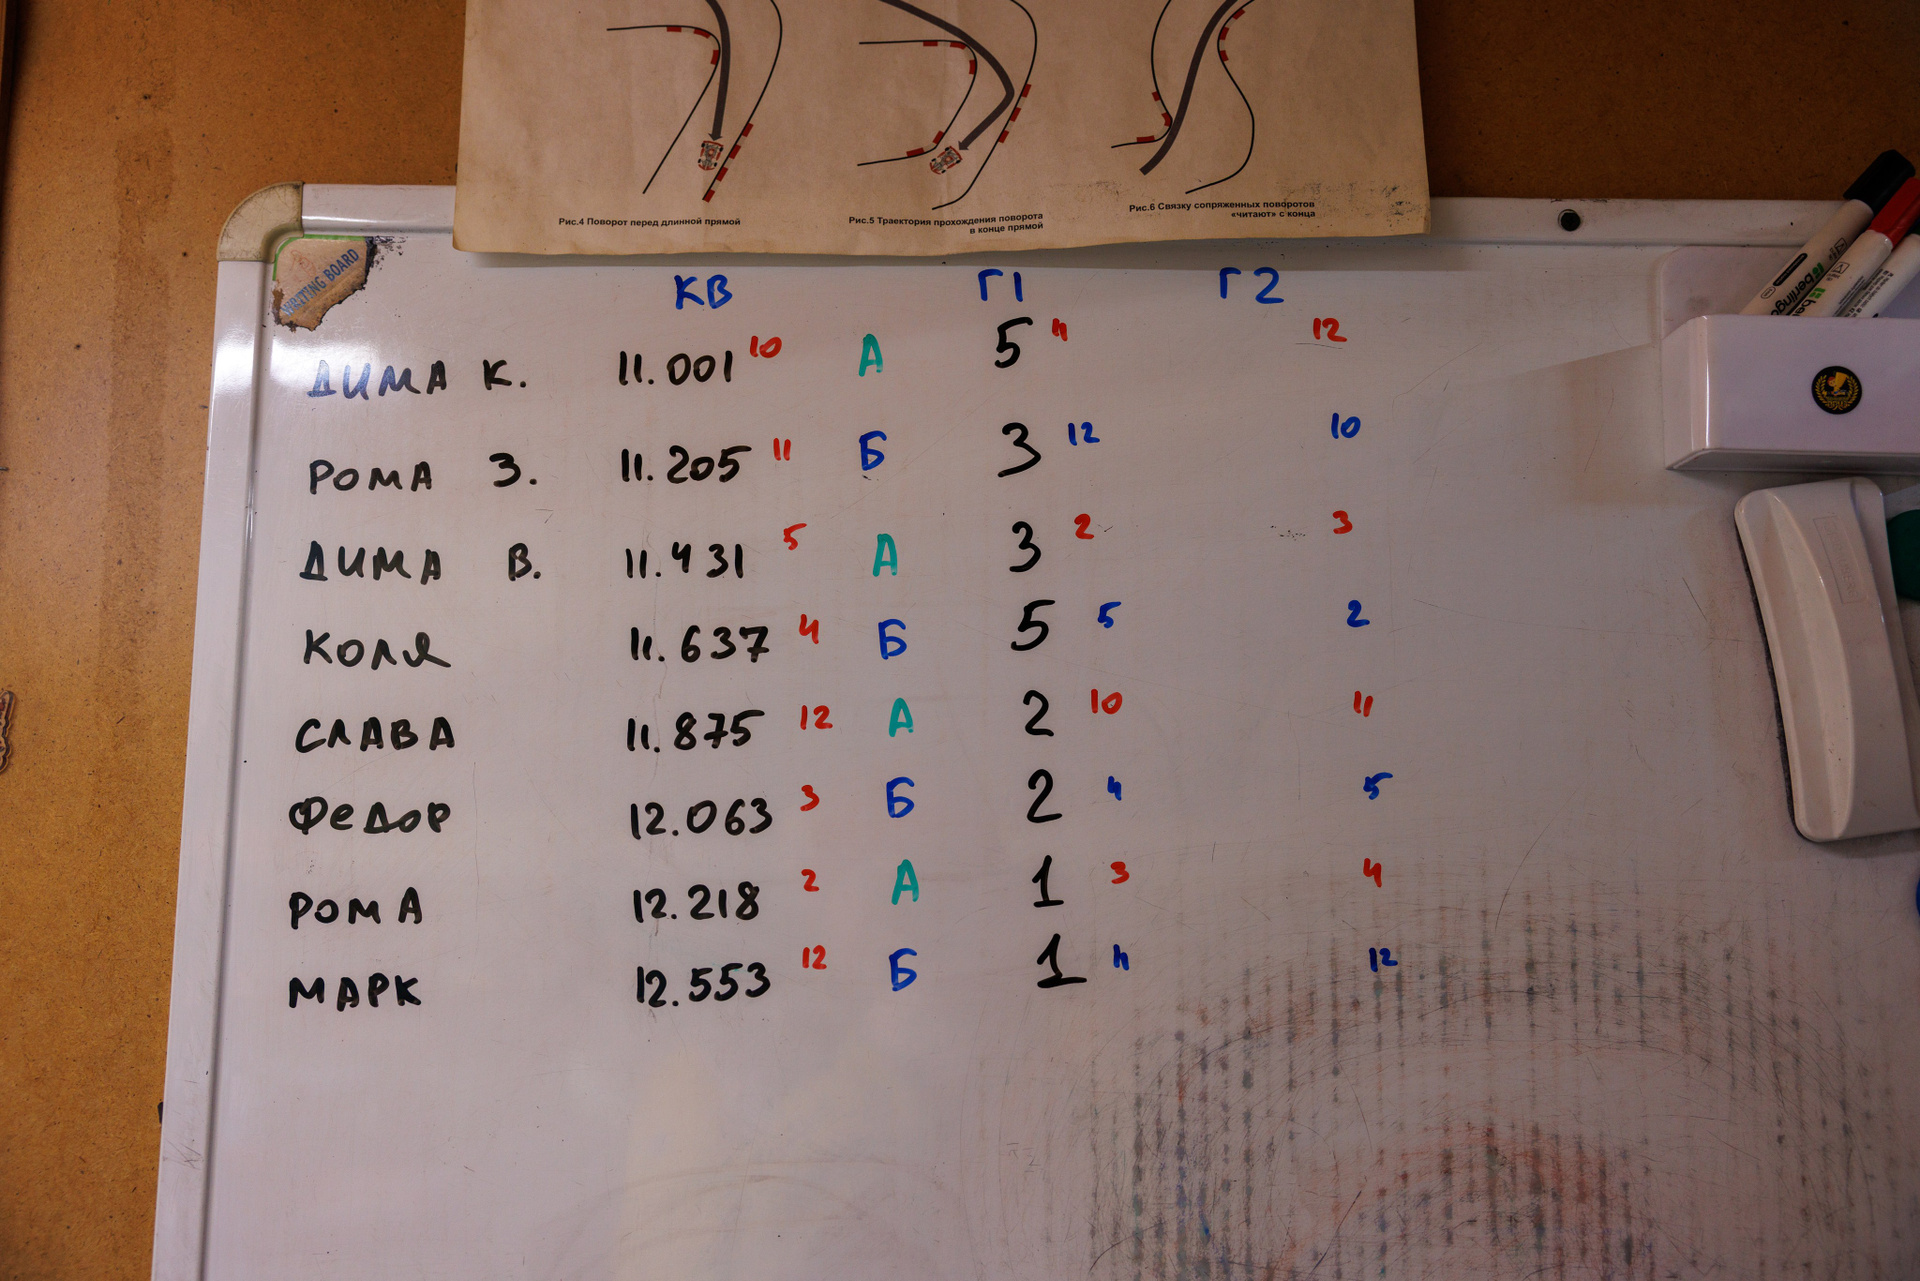 Рис.4 Поворот перед длинной прямой
Рис.5 Траектория прохождения поворота
в конце прямой
Рис.6 Связку сопряженных поворотов
«читают» с конца
WRITING BOARD
КВ Г1 Г2
ДИМА К. 11.001 10 А 5 11 12
РОМА З. 11.205 11 Б 3 12 10
ДИМА В. 11.431 5 А 3 2 3
КОЛЯ 11.637 4 Б 5 5 2
СЛАВА 11.875 12 А 2 10 11
ФЕДОР 12.063 3 Б 2 4 5
РОМА 12.218 2 А 1 3 4
МАРК 12.553 12 Б 1 11 12